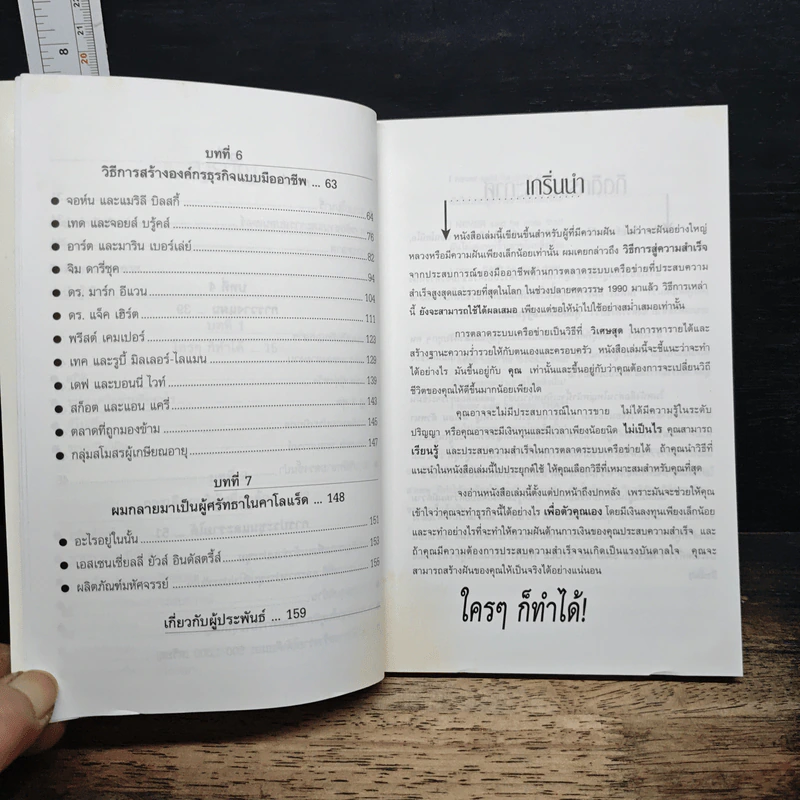 8
21
20
บทที่ 6
วิธีการสร้างองค์กรธุรกิจแบบมืออาชีพ ... 63
● จอห์น และแมริลี บิลสกี้ 64
● เทด และจอยส์ บรู้คส์ 76
● อาร์ต และมาริน เบอร์เล่ย์ 82
● จิม ดารี่ซุค 94
● ดร. มาร์ก อีแวน 104
● ดร. แจ็ค เฮิร์ต 111
● พรีสต์ เคมเปอร์ 123
● เทค และรูบี้ มิลเลอร์-ไลแมน 129
● เดฟ และบอนนี่ ไวท์ 139
● สก็อต และแอน แครี่ 143
● ตลาดที่ถูกมองข้าม 146
● กลุ่มสโมสรผู้เกษียณอายุ 147
บทที่ 7
ผมกลายมาเป็นผู้ศรัทธาในคาโลแร็ด ... 148
● อะไรอยู่ในนั้น 151
● เอสเซนเซี่ยลลี่ ยัวส์ อินดัสตรี้ส์ 153
● ผลิตภัณฑ์มหัศจรรย์ 156
เกี่ยวกับผู้ประพันธ์ ... 159
เกริ่นนำ
หนังสือเล่มนี้เขียนขึ้นสำหรับผู้ที่มีความฝัน ไม่ว่าจะฝันอย่างใหญ่
หลวงหรือมีความฝันเพียงเล็กน้อยเท่านั้น ผมเคยกล่าวถึง วิธีการสู่ความสำเร็จ
จากประสบการณ์ของมืออาชีพด้านการตลาดระบบเครือข่ายที่ประสบความ
สำเร็จสูงสุดและรวยที่สุดในโลก ในช่วงปลายศตวรรษ 1990 มาแล้ว วิธีการเหล่า
นี้ ยังจะสามารถใช้ได้ผลเสมอ เพียงแต่ขอให้นำไปใช้อย่างสม่ำเสมอเท่านั้น
การตลาดระบบเครือข่ายเป็นวิธีที่ วิเศษสุด ในการหารายได้และ
สร้างฐานะความร่ำรวยให้กับตนเองและครอบครัว หนังสือเล่มนี้จะชี้แนะว่าจะทำ
ได้อย่างไร มันขึ้นอยู่กับ คุณ เท่านั้นและขึ้นอยู่กับว่าคุณต้องการจะเปลี่ยนวิถี
ชีวิตของคุณให้ดีขึ้นมากน้อยเพียงใด
คุณอาจจะไม่มีประสบการณ์ในการขาย ไม่ได้มีความรู้ในระดับ
ปริญญา หรือคุณอาจจะมีเงินทุนและมีเวลาเพียงน้อยนิด ไม่เป็นไร คุณสามารถ
เรียนรู้ และประสบความสำเร็จในการตลาดระบบเครือข่ายได้ ถ้าคุณนำวิธีที่
แนะนำในหนังสือเล่มนี้ไปประยุกต์ใช้ ให้คุณเลือกวิธีที่เหมาะสมสำหรับคุณที่สุด
จงอ่านหนังสือเล่มนี้ตั้งแต่ปกหน้าถึงปกหลัง เพราะมันจะช่วยให้คุณ
เข้าใจว่าคุณจะทำธุรกิจนี้ได้อย่างไร เพื่อตัวคุณเอง โดยมีเงินลงทุนเพียงเล็กน้อย
และจะทำอย่างไรที่จะทำให้ความฝันด้านการเงินของคุณประสบความสำเร็จ และ
ถ้าคุณมีความต้องการประสบความสำเร็จจนเกิดเป็นแรงบันดาลใจ คุณจะ
สามารถสร้างฝันของคุณให้เป็นจริงได้อย่างแน่นอน
ใครๆ ก็ทำได้!